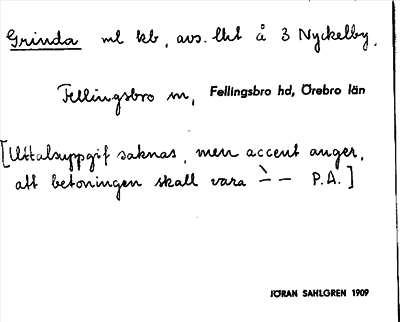 Grinda ml kb, avs. lht å 3 Nyckelby,
Fellingsbro sn, Fellingsbro hd, Örebro län
[Uttalsuppgif saknas, men accent anger,
att betoningen skall vara –̀ – P.A.]
JÖRAN SAHLGREN 1909